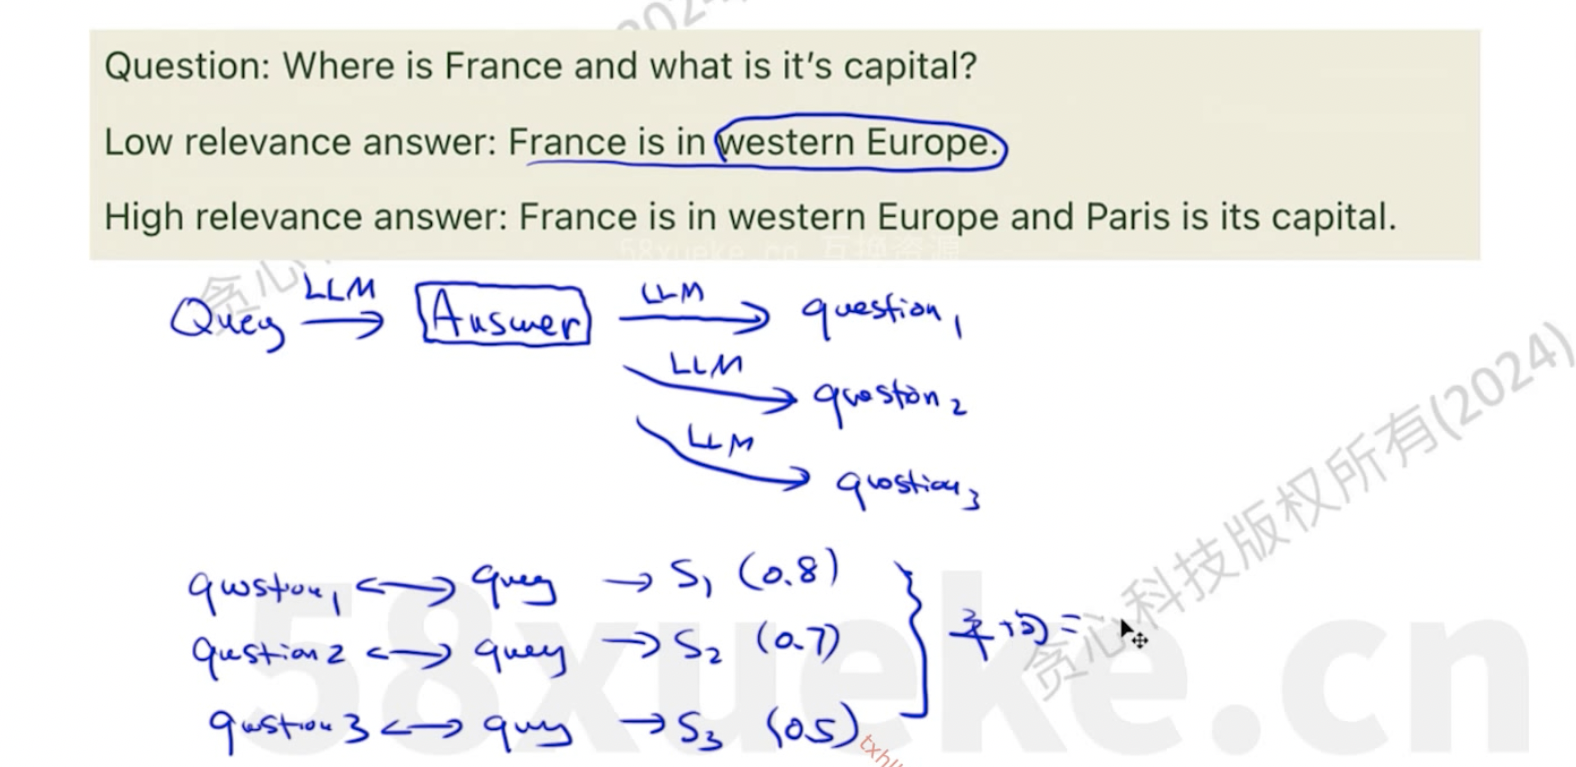 Question: Where is France and what is it's capital?
Low relevance answer: France is in western Europe.
High relevance answer: France is in western Europe and Paris is its capital.
58xueke.cn 互换资源
Query LLM → Answer LLM → question1
LLM → question2
LLM → question3
question1 ↔ query → S1 (0.8)
question2 ↔ query → S2 (0.7) 平均 =
question3 ↔ query → S3 (0.5)
贪心科技版权所有(2024)
58xueke.cn